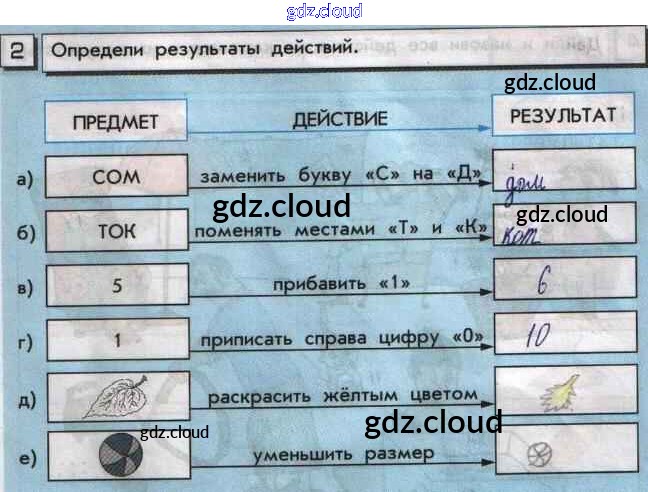 gdz.cloud
2 Определи результаты действий.
gdz.cloud
ПРЕДМЕТ ДЕЙСТВИЕ РЕЗУЛЬТАТ
а) СОМ заменить букву «С» на «Д» дом
gdz.cloud
gdz.cloud
б) ТОК поменять местами «Т» и «К» кот
в) 5 прибавить «1» 6
г) 1 приписать справа цифру «0» 10
д) раскрасить жёлтым цветом
gdz.cloud
gdz.cloud
е) уменьшить размер